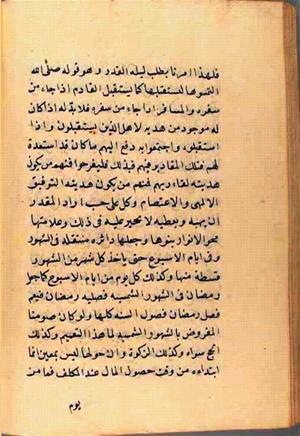 فلهذا امرنا بطلب ليلة القدر وهو قوله صلى الله
التمسوها لنستقبلها كما يستقبل القادم اذا جاء من
سفره والمسافر اذا جاء من سفره فلا بد له اذا كان
له موجود من هدية لاهله الذين يستقبلونه واذا
استقبلوه واجتمعوا به دفع اليهم ما كان قد استعده
لهم فتلك المقادير فيهم فبذلك فليفرحوا فمنهم من يكون
هديته لقاء ربهم ومنهم من يكون هديته التوفيق
الالهي والاعتصام وكل على حسب ما اراد المقدر
ان يهبه ويعطيه لا تحجير عليه في ذلك وعلامتها
محو الانوار بنورها وجعلها دائرة متنقلة في الشهور
وفي ايام الاسبوع حتى ياخذ كل شهر من الشهور
قسطه منها وكذلك كل يوم من ايام الاسبوع كما جعل
رمضان في الشهور الشمسية فصليه رمضان فيعم
فصل رمضان فصول السنة كلها ولو كان صومنا
المفروض بالشهور الشمسية لما هذا التعميم وكذلك
الحج سواء وكذلك الزكوة وان حولها ليس بمعين فا
ابتداءه من وقت حصول المال عند المكلف فما من
يوم